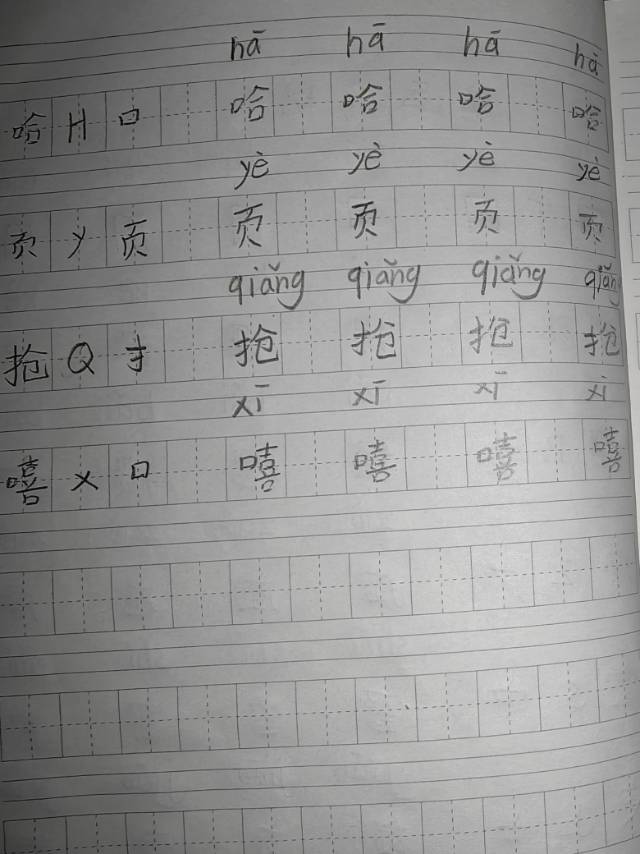 hā hā hā hā
哈 H 口 哈 哈 哈 哈
yè yè yè yè
页 y 页 页 页 页 页
qiǎng qiǎng qiǎng qiǎng
抢 Q 扌 抢 抢 抢 抢
xī xī xī xī
嘻 x 口 嘻 嘻 嘻 嘻